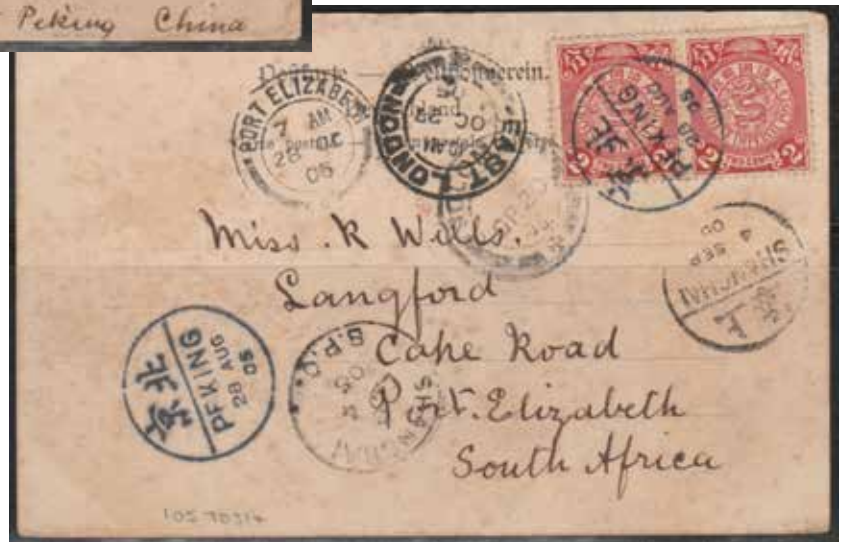 Peking China
Postkarte — Weltpostverein.
PORT ELIZABETH
7 AM
28 OC
05
EAST LONDON
OC 23
05
北京
PEKING
28 AUG
05
2 TWO CENTS 2
2 TWO CENTS 2
SP 20
SHANGHAI
4 SEP
05
上海
Miss. K Wells.
Langford
Cape Road
Port. Elizabeth
South Africa
北京
PEKING
28 AUG
05
SHANGHAI
B.P.O.
05